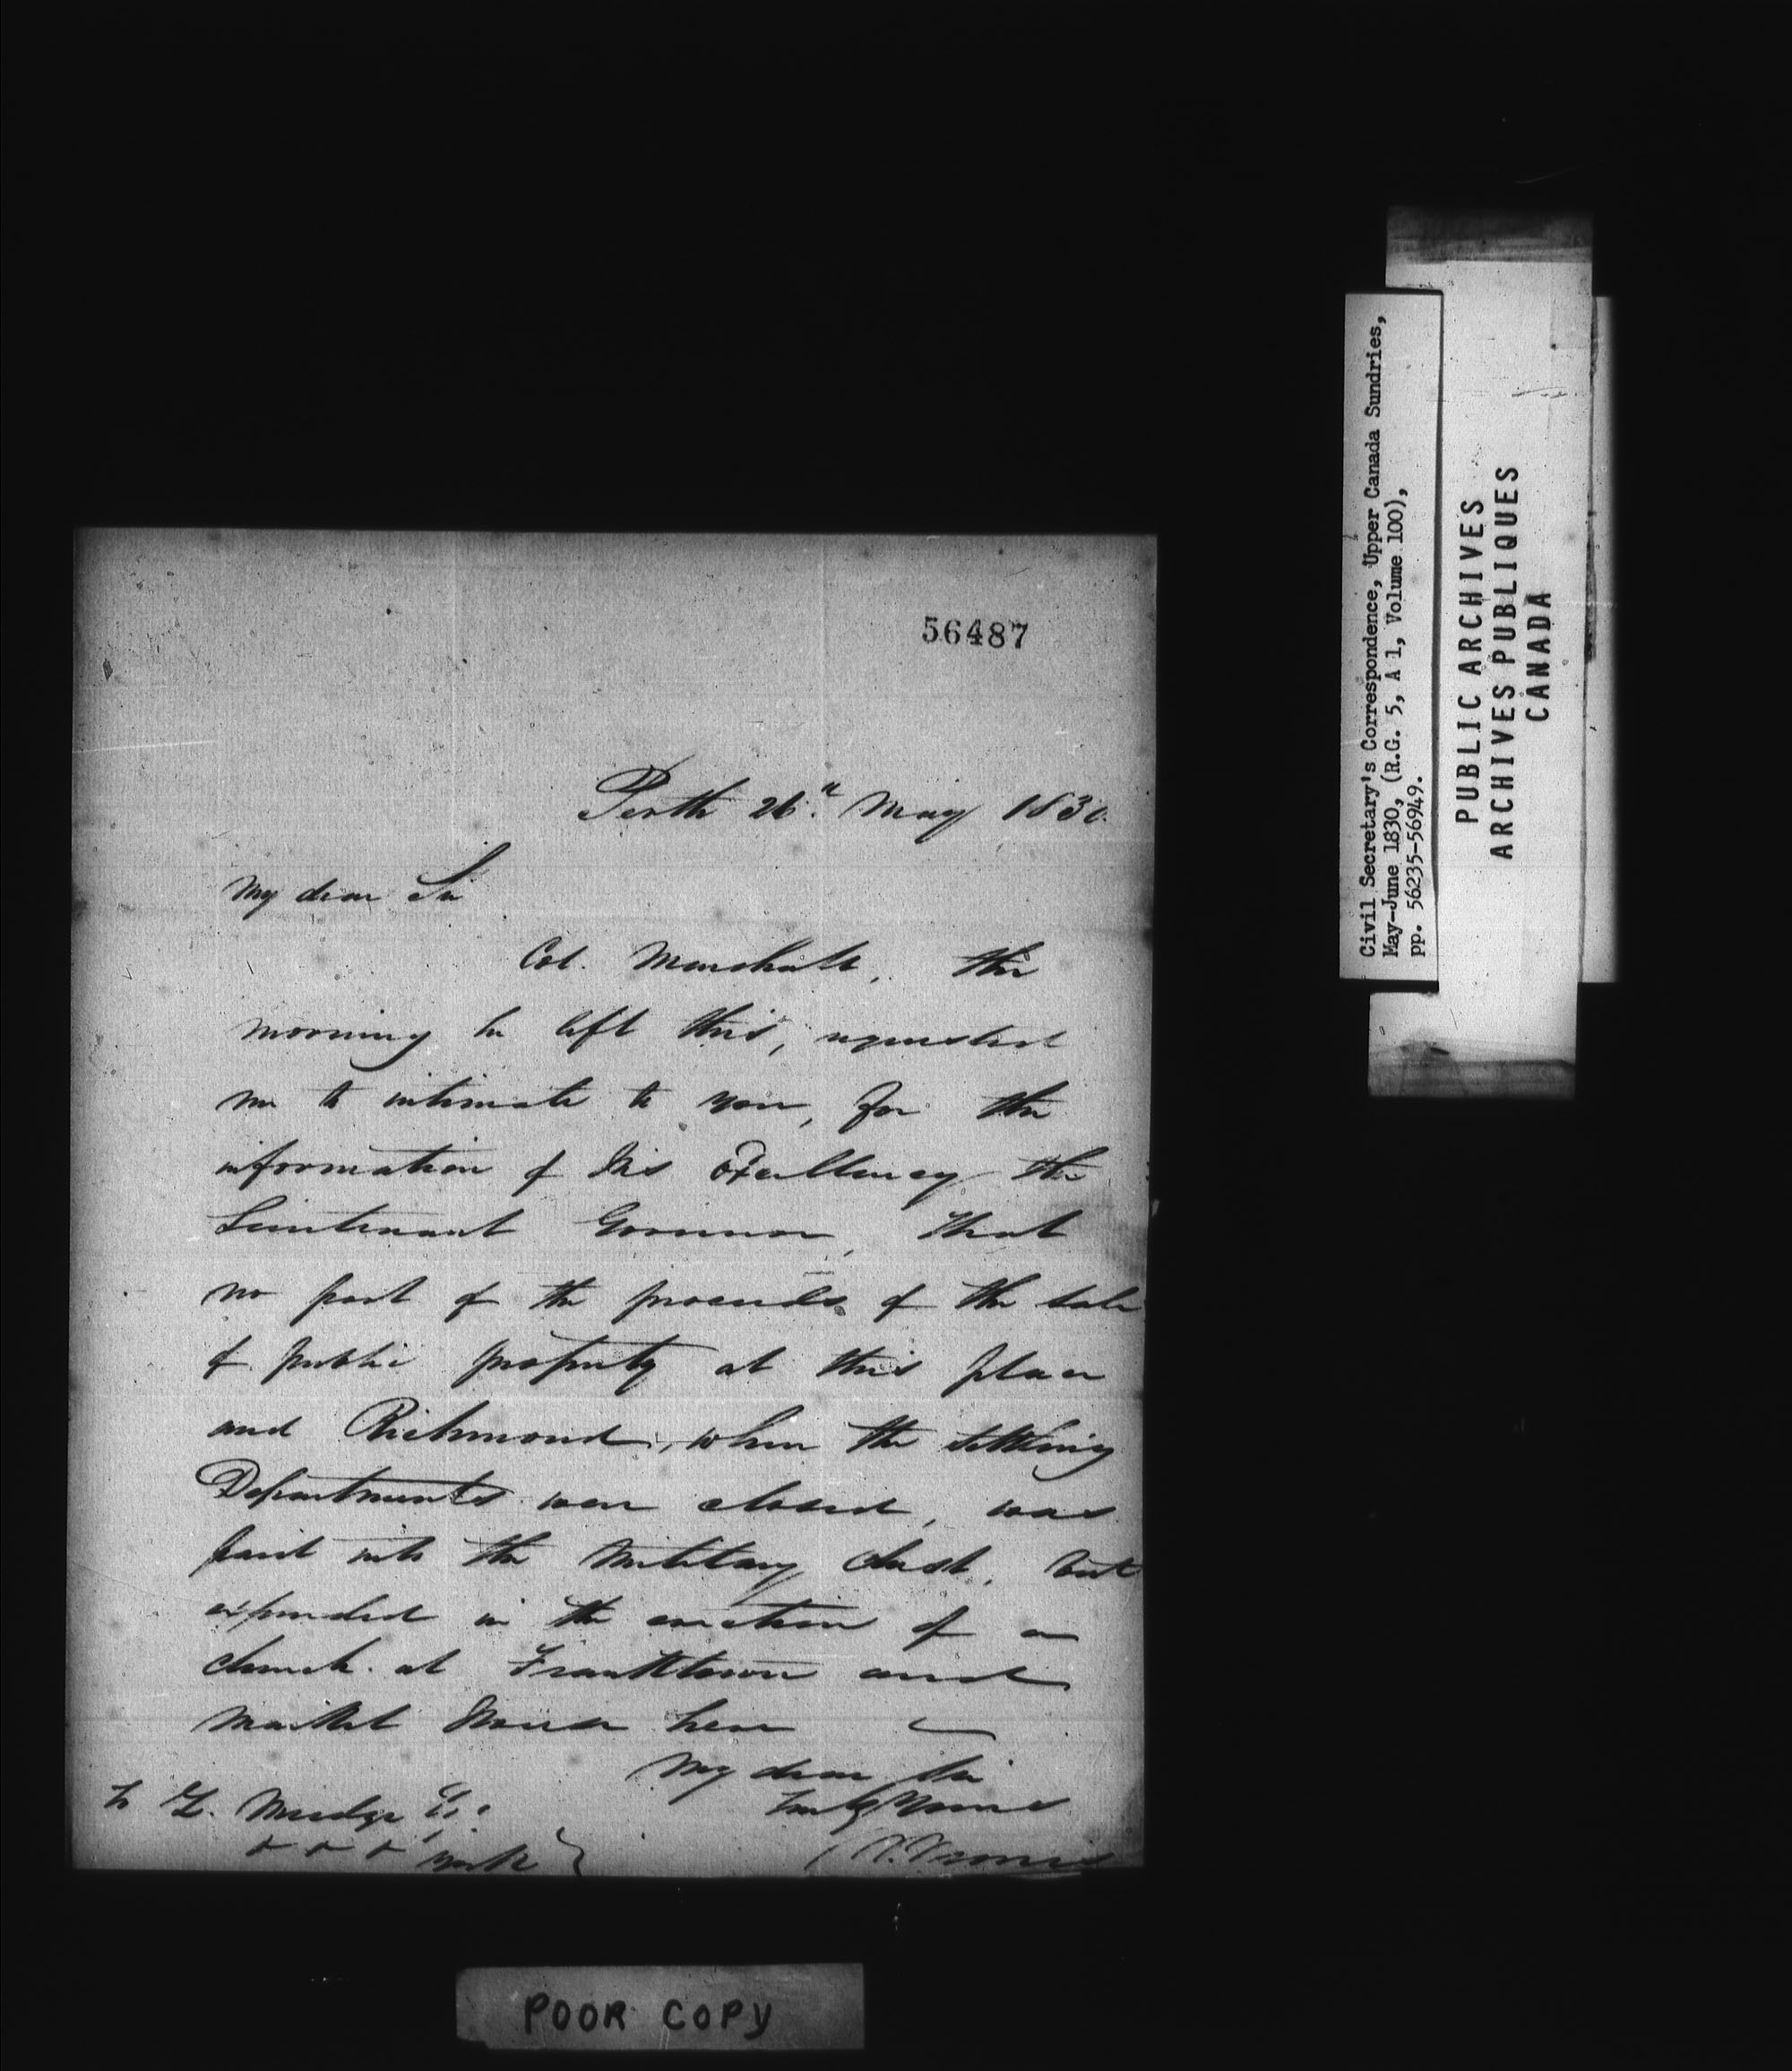 56487
Perth 26th May 1830.
My dear Sir
Col. Marshall, the
morning he left this, requested
me to intimate to you, for the
information of His Excellency the
Lieutenant Governor, that
no part of the proceeds of the sale
of public property at this place
and Richmond, when the settling
Departments were closed, was
paid into the Military Chest, but
expended in the erection of a
church at Franktown and
market House here
My dear Sir
Truly Yours
To Z. Mudge Esq.
York
Civil Secretary's Correspondence, Upper Canada Sundries,
May-June 1830, (R.G. 5, A 1, Volume 100),
pp. 56235-56949.
PUBLIC ARCHIVES
ARCHIVES PUBLIQUES
CANADA
POOR COPY